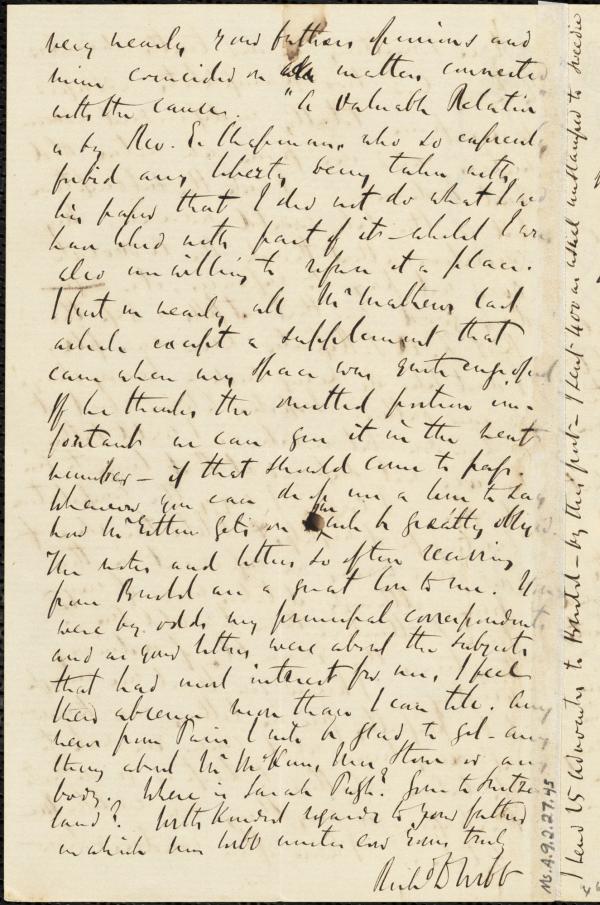 very nearly your father's opinions and
mine coincided on all matters connected
with the cause. "A Valuable Relation
is by Rev. E. Chapman, who so expressly
forbid any liberty being taken with
his paper that I did not do what I wd
have liked with part of it - whilst I was
also unwilling to refuse it a place.
I put in nearly all Mr Mathews last
article except a supplement that
came when my space was quite engrossed
If he thinks the omitted portion im-
portant we can give it in the next
number - if that should come to pass.
Whenever you can drop me a line to say
how Mr Estlin gets on I'll be greatly obliged.
The notes and letters so often receiving
from Bristol are a great loss to me. You
were by odds my principal correspondents
and as your letters were about the subjects
that had most interest for me, I feel
their absence more than I can tell. Any
news from Paris I will be glad to get - any
thing about Mr McKim, Mrs Stowe or any
body. Where is Sarah Pugh? Gone to Switzer
land? With kindest regards to your father
in which Mrs Webb unites ever yours truly
Richd D Webb
I send 25 advocates to Bristol - by this post - I sent 400 as asked unstamped to Tweedie
Ms.A.9.2.27.43